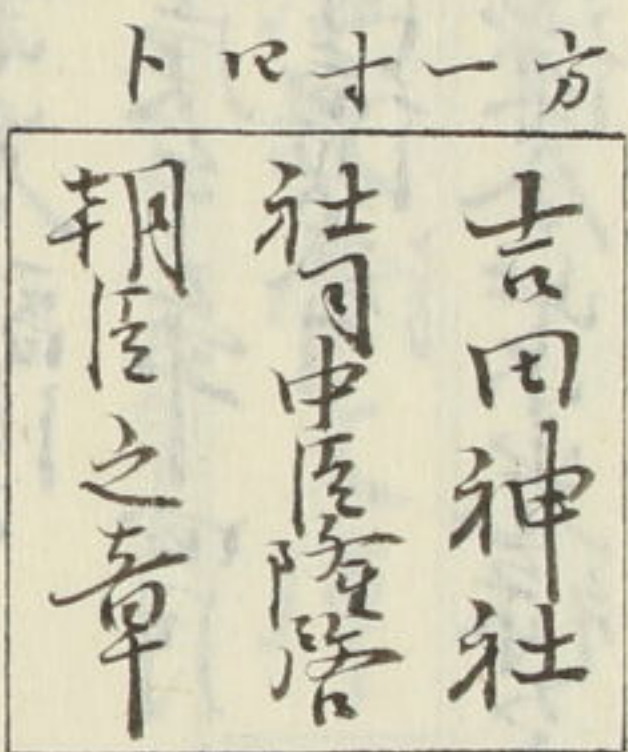 方一寸四ト
吉田神社
社司中臣隆啓
朝臣之章